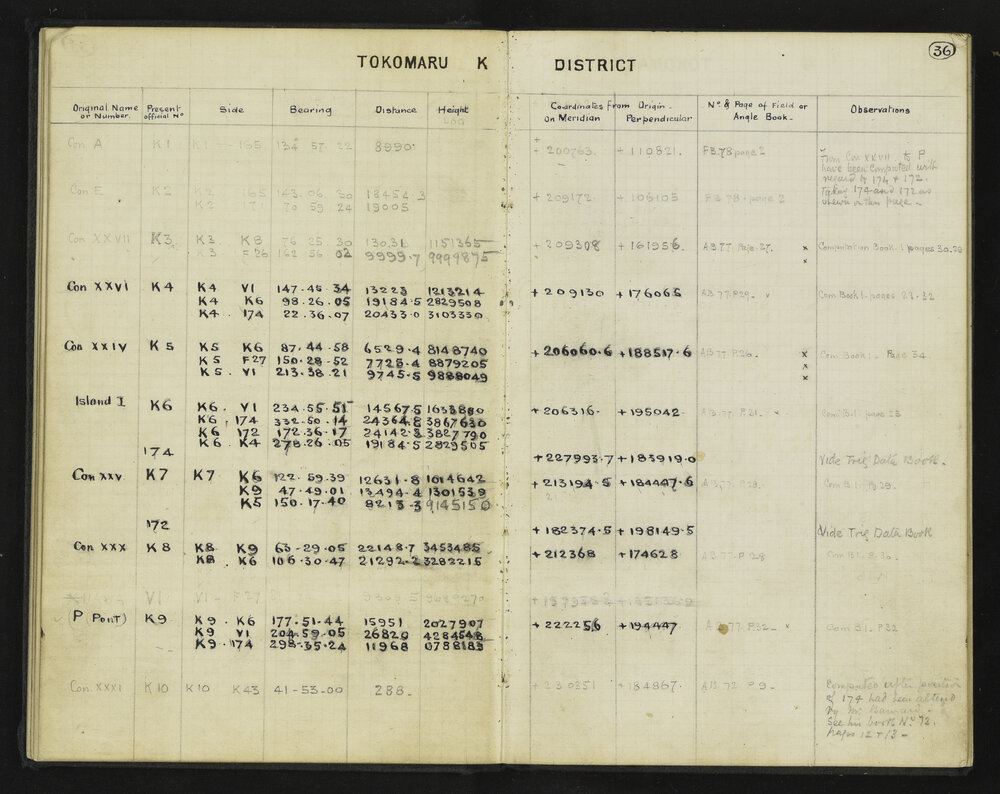 36
TOKOMARU K DISTRICT
Original Name or Number. Present official No Side Bearing Distance Height Log Coordinates from Origin on Meridian Perpendicular No & Page of Field or Angle Book Observations
Con A K1 K1 165 134 57 22 8990 + 200763 + 110821. FB.78 page 2
From Con XXVII to P
have been computed with
regard to 174 & 172.
Taken 174 and 172 as
shewn on this page.
Con E K2 K2 165 143.06.30 18454.3 + 209172 + 106105 FB 78 - page 2
K2 171 70 59 24 19005
Con XXVII K3 K3 K8 76 25 30 13031 1151365 + 209308 + 161956. AB77 Page 27. x Computation Book 1 pages 30.29
K3 F26 162 56 02 9999.7 9999875 x
Con XXVI K4 K4 VI 147.45.34 13223 1213214 + 209130 + 176065 AB 77. P29. Com Book 1. pages 23-32
K4 K6 98.26.05 19184.5 2829508
K4. 174 22.36.07 20433.0 3103330
Con XXIV K5 K5 K6 87.44.58 6529.4 8148740 + 206060.6 + 188517.6 AB 77 P26. x Com Book 1. Page 34.
K5 F27 150.28.52 7725.4 8879205 x
K5. VI 213.38.21 9745.5 9888049 x
Island I K6 K6. VI 234.55.51 14567.5 1633880 + 206316. + 195042 AB. 77. P.31. Com B.1. page 23
K6. 174 332.50.14 24364.8 3867630
K6 172 172.36.17 24142.3 3827790
K6. K4 278.26.05 19184.5 2829505
174 + 227993.7 + 183919.0 Vide Trig Data Book.
Con XXV K7 K7 K6 122.59.39 12631.8 1014642 + 213194.5 + 184447.6 AB 77 P28. Com B 1. P.29.
K9 47.49.01 13494.4 1301539
K5 150.17.40 8213.3 9145150
172 + 182374.5 + 198149.5 Vide Trig Data Book
Con XXX K8 K8 K9 63-29.05 22148.7 3453485 + 212368 + 174628 AB.77. P 28 Com B1. P.30.
K8. K6 106.30.47 21292.2 3282215
VI VI F27
P (Port) K9 K9. K6 177.51.44 15951 2027907 + 222256 + 194447 AB 77 P.32 Com B1. P32
K9 VI 204.59.05 26820 4284548
K9. 174 298.35.24 11968 0788183
Con XXXI K10 K10 K43 41-53-00 288. + 230351 + 184867. AB 72 P 9.
Computed after position
of 174 had been altered
by Mr
See his book No 72.
pages 12 & 13 -